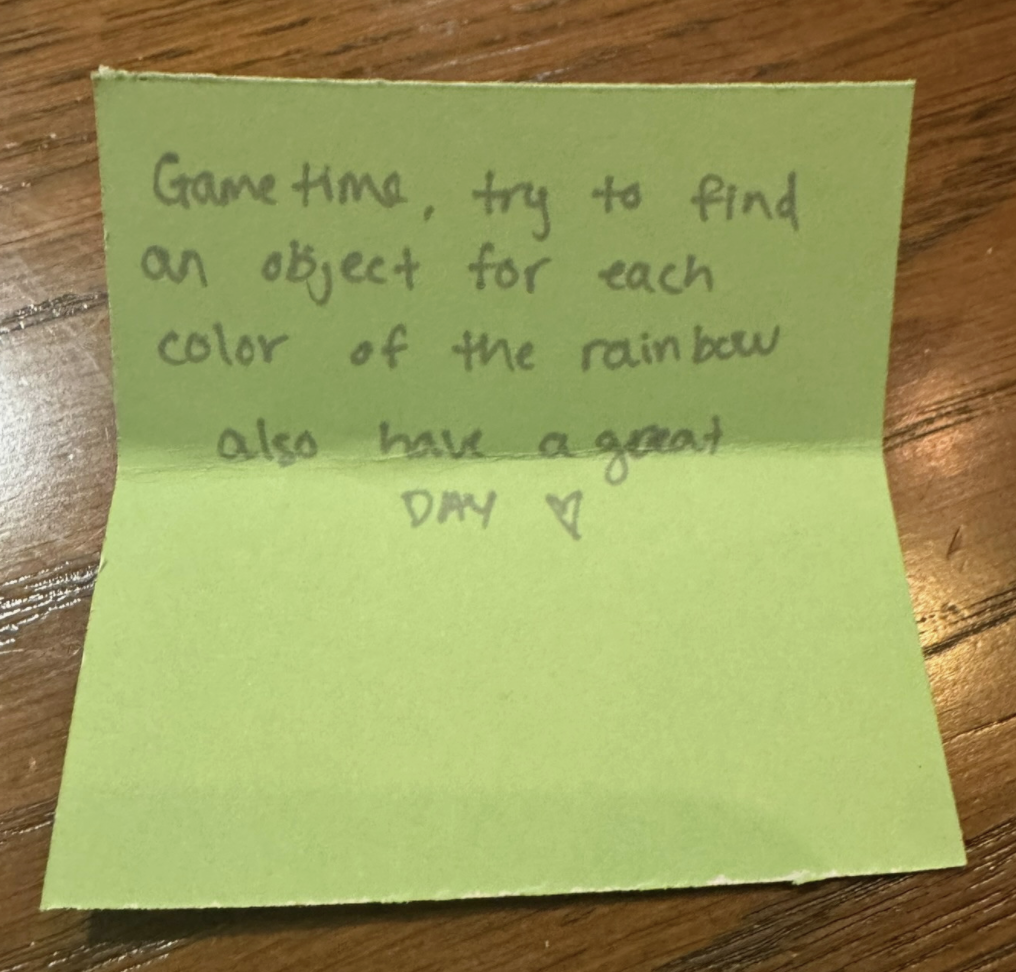 Game time, try to find
an object for each
color of the rainbow
also have a great
DAY ♡